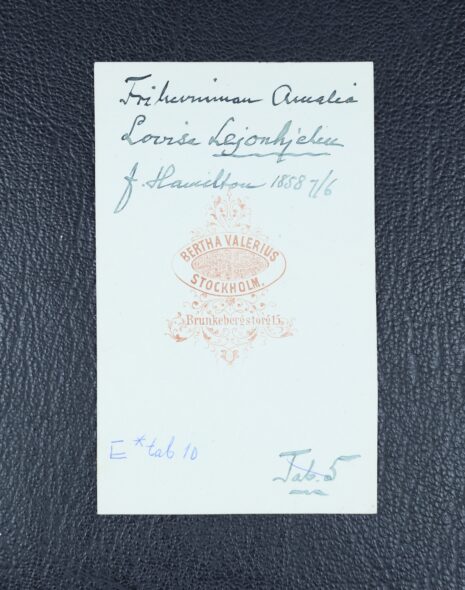 Friherrinnan Amalia
Lovisa Lejonhjelm
f. Hamilton 1858 7/6
BERTHA VALERIUS
STOCKHOLM.
Brunkebergstorg 15.
E * tab 10
Tab. 5